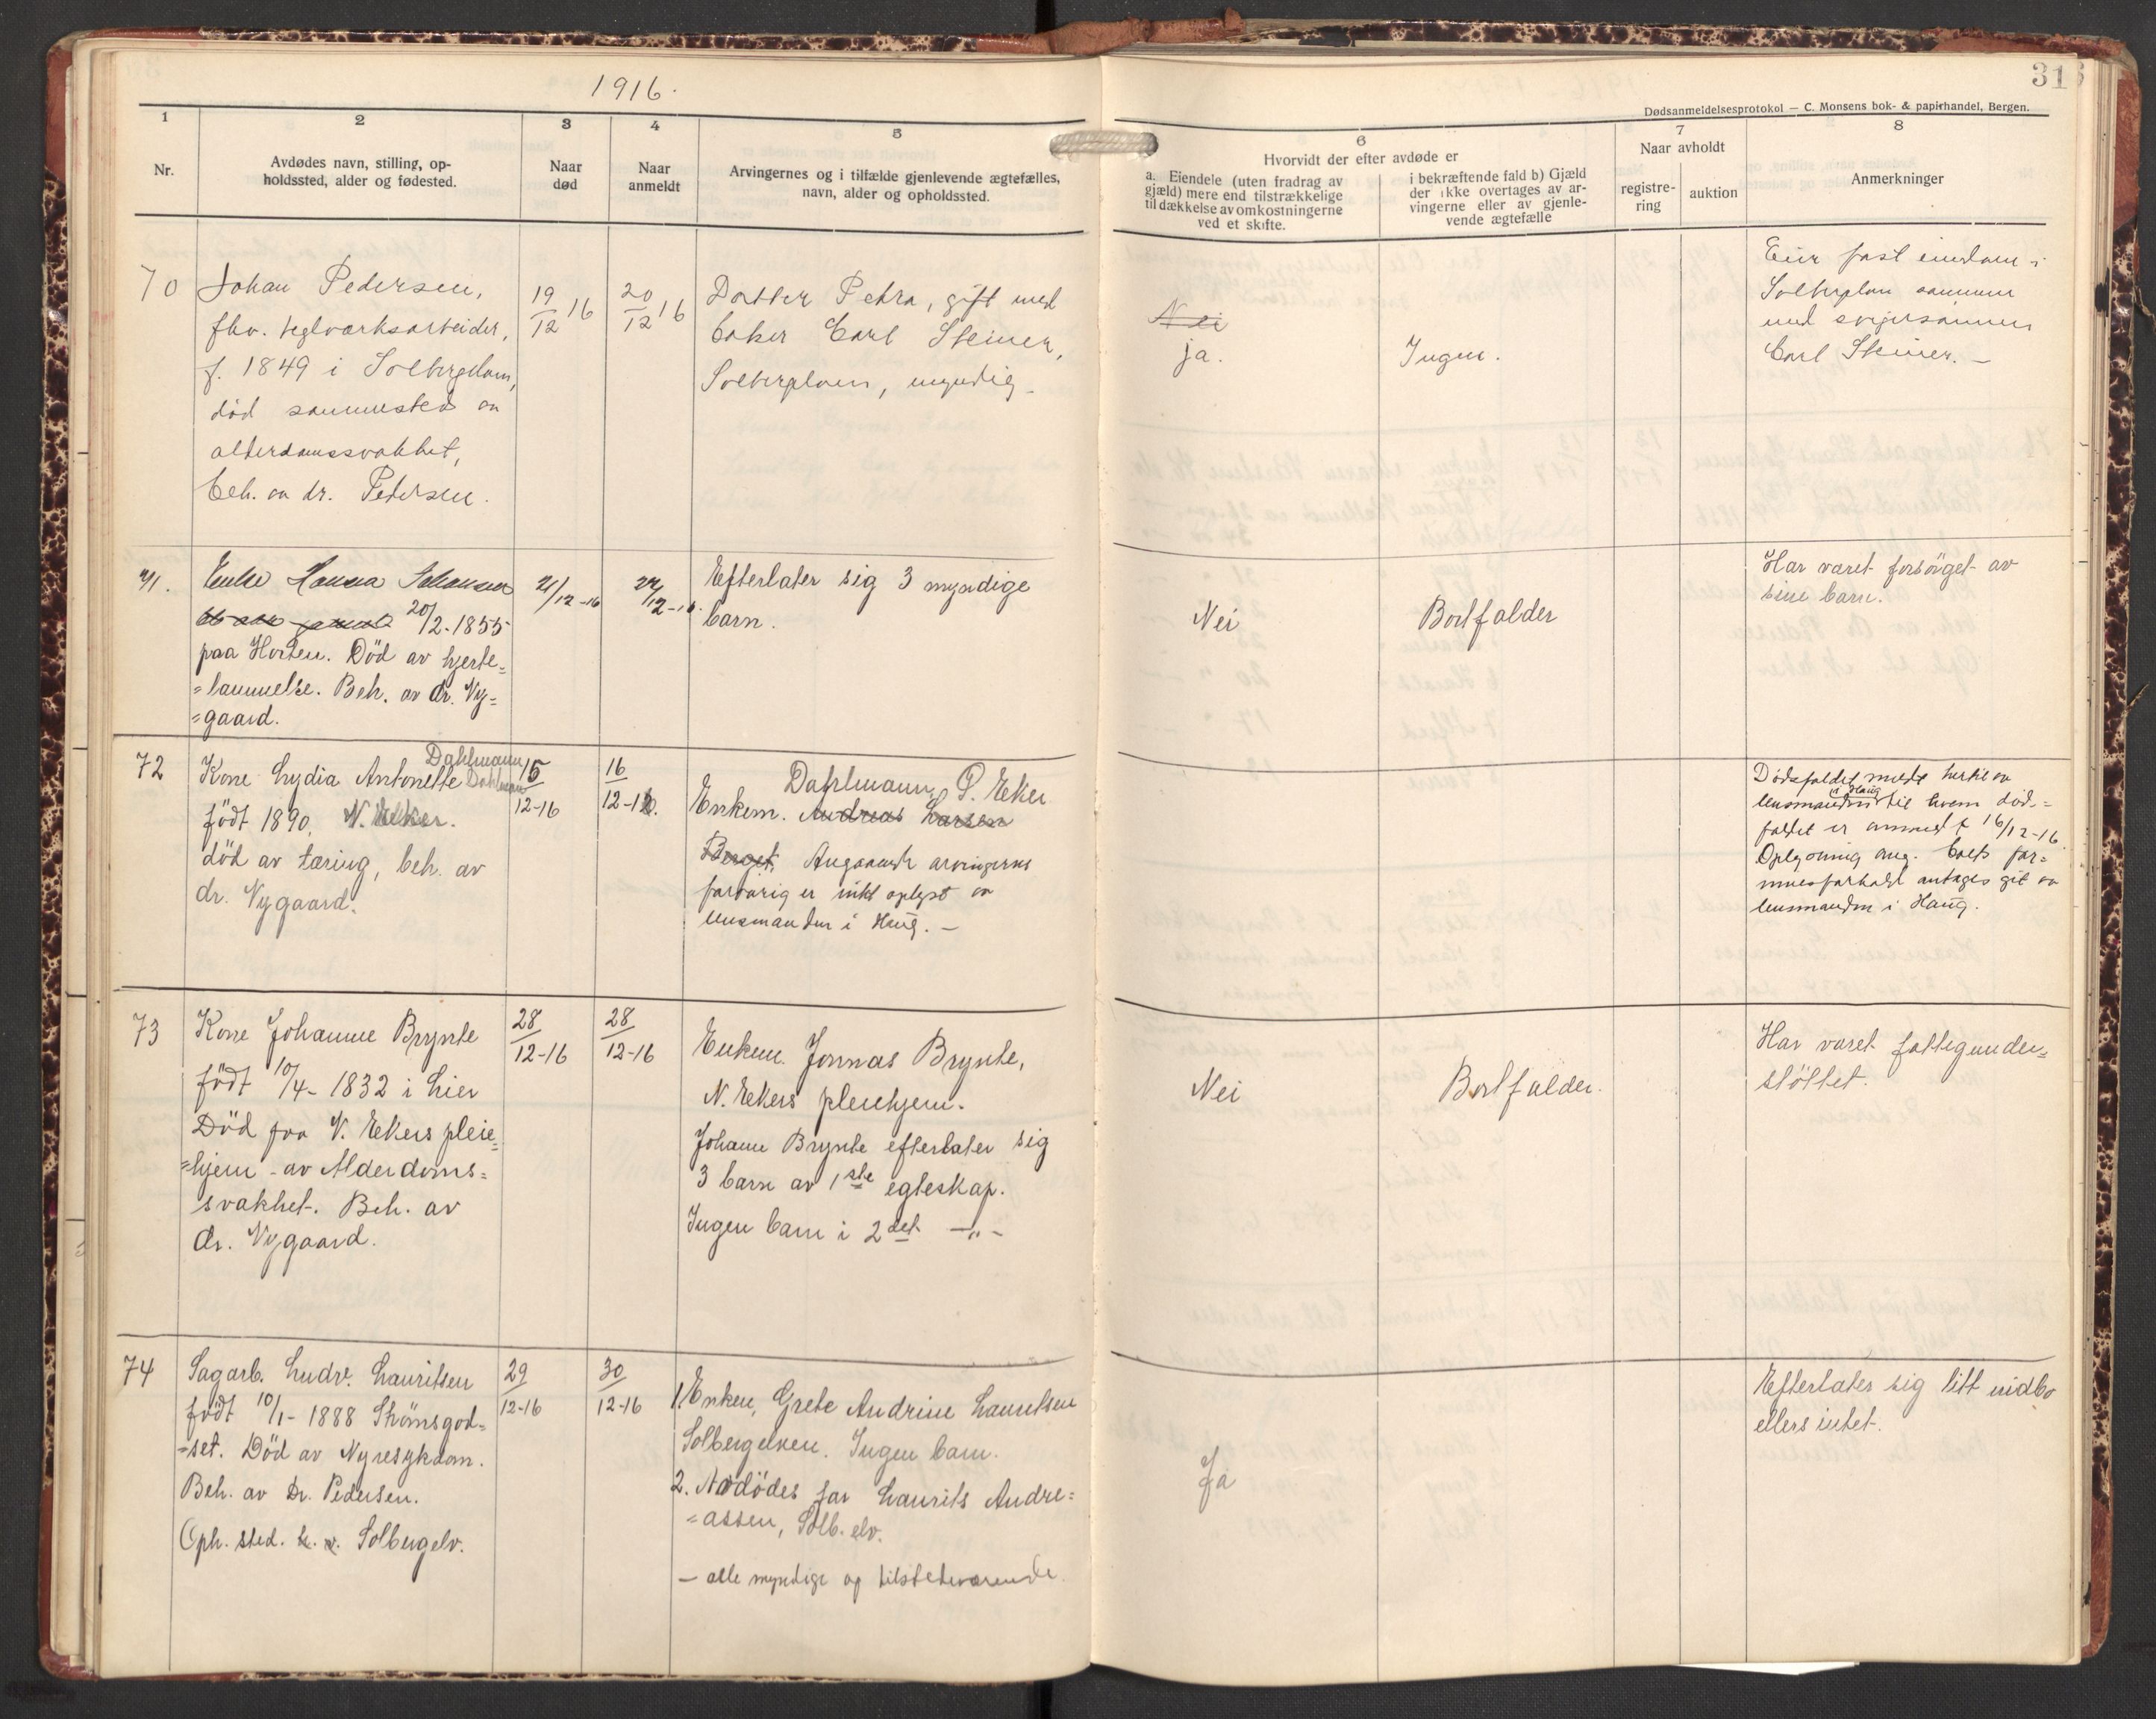 1916.
31
Dødsanmeldelsesprotokol — C. Monsens bok- & papirhandel, Bergen.
1
Nr.
2
Avdødes navn, stilling, op-
holdssted, alder og fødested.
3
Naar
død
4
Naar
anmeldt
5
Arvingernes og i tilfælde gjenlevende ægtefælles,
navn, alder og opholdssted.
6
Hvorvidt der efter avdøde er
a. Eiendele (uten fradrag av
gjæld) mere end tilstrækkelige
til dækkelse av omkostningerne
ved et skifte.
i bekræftende fald b) Gjæld
der ikke overtages av ar-
vingerne eller av gjenle-
vende ægtefælle
7
Naar avholdt
registre-
ring
auktion
8
Anmerkninger
70
Johan Pedersen,
fhv. teglverksarbeider,
f. 1849 i Solbergelven,
død sammesteds av
alderdomssvakhet,
beh. av dr. Pedersen.
19/12 16
20/12 16
Datter Petra, gift med
baker Carl Steiner,
Solbergelven, myndig.
Nei
ja.
Ingen.
Eier fast eiendom i
Solbergelven sammen
med svigersønnen
Carl Steiner. —
71.
Enke Hanna Johansen
20/2-1855
paa Horten. Död av hjerte=
=lammelse. Beh. av dr. Ny=
=gaard.
21/12-16
22/12-16
Efterlater sig 3 myndige
barn.
Nei
Bortfalder
Har været forsörget av
sine barn.
72
Dahlmann
Kone Lydia Antonette Dahlmann
födt 1890, N. Eker.
död av tæring, beh. av
dr. Nygaard.
15/12-16
16/12-16.
Dahlmann, Ø. Eker
Enkem. Andreas Larsen
Berget, Angaaende arvingerne
forøvrig er intet oplyst av
lensmanden i Haug. —
Dødsfaldet meldt hertil av
lensmanden i Haug til hvem døds=
faldet er anmeldt 16/12-16
Oplysning ang. boets for=
muesforhold antages git av
lensmanden i Haug.
73
Kone Johanne Brynte
födt 10/4-1832 i Lier
Död paa N. Ekers pleie=
=hjem - av Alderdoms=
svakhet. Beh. av
dr. Nygaard.
28/12-16
28/12-16
Enkem. Jonnas Brynte,
N. Ekers pleiehjem.
Johanne Brynte efterlater sig
3 barn av 1ste egteskap.
Ingen barn i 2det —"—
Nei
Bortfalder.
Har været fattigunder=
støttet.
74
Sagarb. Ludv. Lauritsen
födt 10/1-1888 Strømsgod=
=set. Död av Nyresykdom.
Beh. av Dr. Pedersen.
Oph. sted. Solbergelv.
29/12-16
30/12-16
1. Enken, Grete Andrine Lauritsen
Solbergelven. Ingen barn.
2. Avdödes far Laurits Andre=
=assen, Solb. elv.
— alle myndige og tilstedeværende.
Ja
Efterlater sig litt indbo
ellers intet.